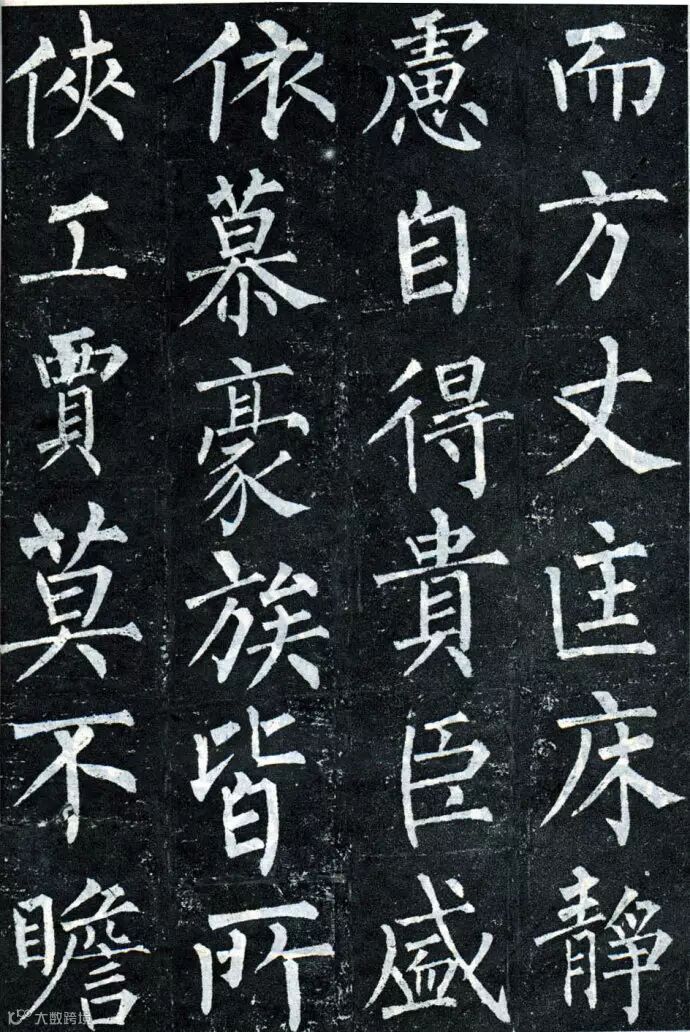 而方丈匡床靜
慮自得貴臣盛
依慕豪族皆所
俠工賈莫不瞻
大数跨境